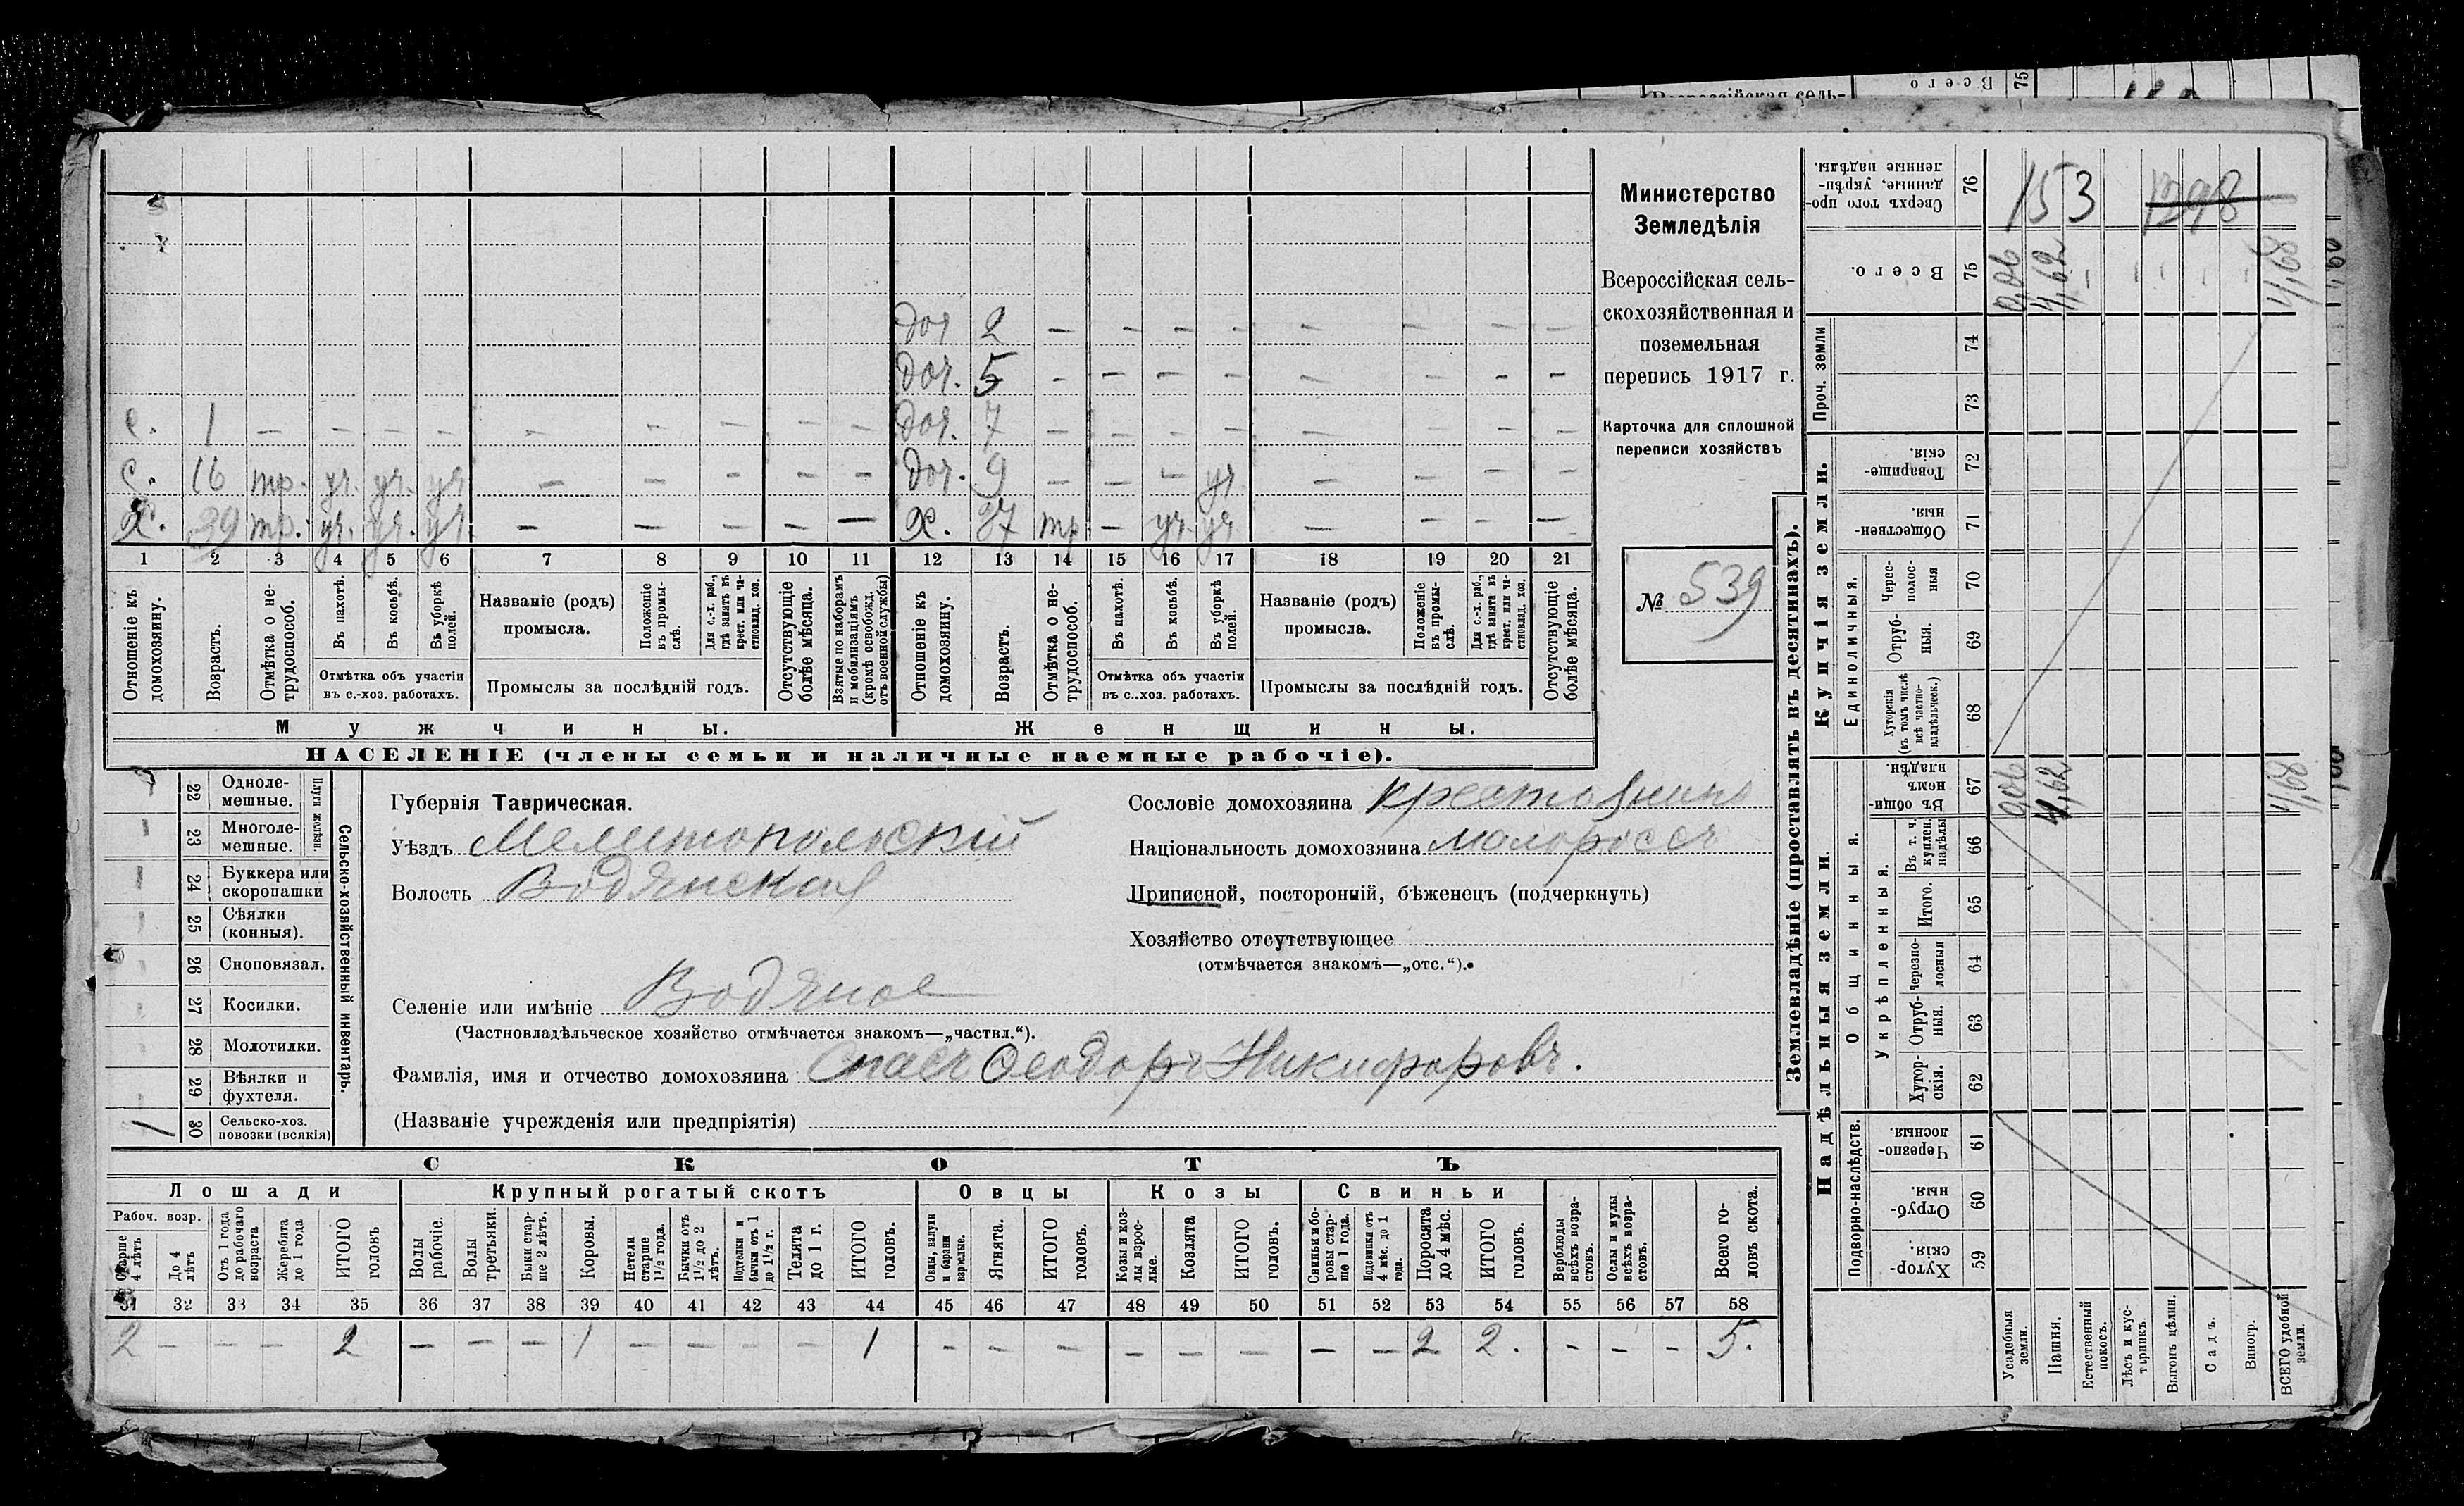 Всероссійская сель-
Всего 75
Министерство
Земледѣлія
Всероссійская сель-
скохозяйственная и
поземельная
перепись 1917 г.
Карточка для сплошной
переписи хозяйствъ
№ 539
доч 2 — — — — — — — —
доч. 5 — — — — — — — —
с. 1 — — — — — — — — — доч. 7 — — — — — — — —
с. 16 тр. уч. уч. уч — — — — — доч. 9 — — — уч — — — —
Х. 39 тр. уч. уч. уч. — — — — — Х. 37 тр — уч. уч — — — —
1 2 3 4 5 6 7 8 9 10 11 12 13 14 15 16 17 18 19 20 21
Отношеніе къ домохозяину.
Возрастъ.
Отмѣтка о не-трудоспособ.
Въ пахотѣ.
Въ косьбѣ.
Въ уборкѣ полей.
Отмѣтка объ участіи
въ с.-хоз. работахъ.
Названіе (родъ)
промысла.
Положеніе въ промы-слѣ.
Для с.-х. раб., гдѣ занятъ въ крест. или ча-стновлад. хоз.
Промыслы за послѣдній годъ.
Отсутствующіе болѣе мѣсяца.
Взятые по наборамъ и мобилизаціямъ (кромѣ освобожд. отъ военной службы)
Отношеніе къ домохозяину.
Возрастъ.
Отмѣтка о не-трудоспособ.
Въ пахотѣ.
Въ косьбѣ.
Въ уборкѣ полей.
Отмѣтка объ участіи
въ с..хоз. работахъ.
Названіе (родъ)
промысла.
Положеніе въ промы-слѣ.
Для с.-х. раб., гдѣ занята въ крест. или ча-стновлад. хоз.
Промыслы за послѣдній годъ.
Отсутствующіе болѣе мѣсяца.
Мужчины.
Женщины.
НАСЕЛЕНІЕ (члены семьи и наличные наемные рабочіе).
Сельско-хозяйственный инвентарь.
Плуги желѣзн.
22 Одноле-мешные.
23 Многоле-мешные.
24 Буккера или скоропашки
25 Сѣялки (конныя).
26 Сноповязал.
27 Косилки.
28 Молотилки.
29 Вѣялки и фухтеля.
1 30 Сельско-хоз. повозки (всякія)
Губернія Таврическая.
Уѣздъ Мелитопольскій
Волость Водянская
Селеніе или имѣніе Водяное
(Частновладѣльческое хозяйство отмѣчается знакомъ—„частвл.“).
Фамилія, имя и отчество домохозяина Спасъ Ѳеодоръ Никифоровъ.
(Названіе учрежденія или предпріятія)
Сословіе домохозяина крестьянинъ
Національность домохозяина малороссъ
Приписной, посторонній, бѣженецъ (подчеркнуть)
Хозяйство отсутствующее
(отмѣчается знакомъ—„отс.“).
СКОТЪ
Лошади
Крупный рогатый скотъ
Овцы
Козы
Свиньи
Рабоч. возр.
Старше 4 лѣтъ
До 4 лѣтъ
Отъ 1 года до рабочаго возраста
Жеребята до 1 года
ИТОГО головъ
Волы рабочіе.
Волы третьяки.
Быки стар-ше 2 лѣтъ.
Коровы.
Нетели старше 1½ года.
Бычки отъ 1½ до 2 лѣтъ.
Подтелки и бычки отъ 1 до 1½ г.
Телята до 1 г.
ИТОГО головъ.
Овцы, валухи и бараны взрослые.
Ягнята.
ИТОГО головъ.
Козы и коз-лы взрос-лые.
Козлята
ИТОГО головъ.
Свиньи и бо-ровы стар-ше 1 года.
Подсвинки отъ 4 мѣс. до 1 года.
Поросята до 4 мѣс.
ИТОГО головъ.
Верблюды всѣхъ возра-стовъ.
Ослы и мулы всѣхъ возра-стовъ.
Всего го-ловъ скота.
31 32 33 34 35 36 37 38 39 40 41 42 43 44 45 46 47 48 49 50 51 52 53 54 55 56 57 58
2 — — — 2 — — — 1 — — — — 1 — — — — — — — — 2 2. — — — 5.
Землевладѣніе (проставлять въ десятинахъ).
Надѣльныя земли.
Купчія земли.
Проч. земли
Подворно-наслѣдств.
Общинныя.
Укрѣпленныя.
Единоличныя.
Сверхъ того про-данные, укрѣп-ленные надѣлы. 76 153 1298
Всего. 75 0,06 4,62 4,68
74
73
Товарище-скія. 72
Обществен-ныя. 71
Черес-полос-ныя 70
Отруб-ныя. 69
Хуторскія (въ томъ числѣ всѣ частно-владѣльческ.) 68
Въ общин-номъ владѣн. 67 0,06 4,62 4,68
Въ т. ч. куплен. надѣлы 66
Итого. 65
Черезпо-лосныя 64
Отруб-ныя. 63
Хутор-скія. 62
Черезпо-лосныя. 61
Отруб-ныя. 60
Хутор-скія. 59
Усадебныя земли.
Пашня.
Естественный покосъ.
Лѣсъ и кус-тарникъ.
Выгонъ цѣлин.
Садъ.
Виногр.
ВСЕГО удобной земли.